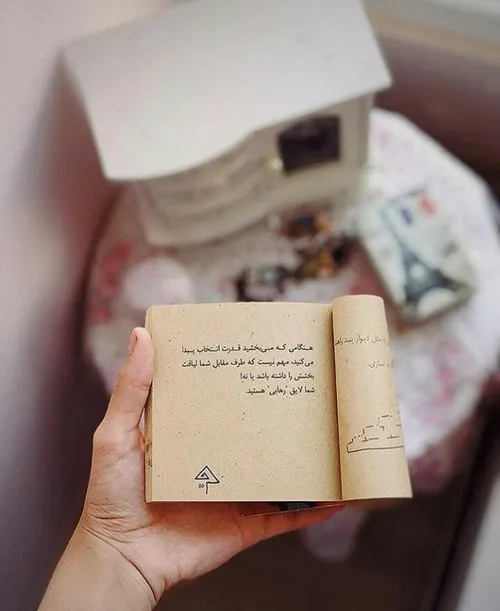 هنگامی که می‌بخشید قدرت انتخاب پیدا
می‌کنید، مهم نیست که طرف مقابل شما لیاقت
بخشش را داشته باشد یا نه!
شما لایق 'رهایی' هستید.
۵۵
مثل دیوار بند